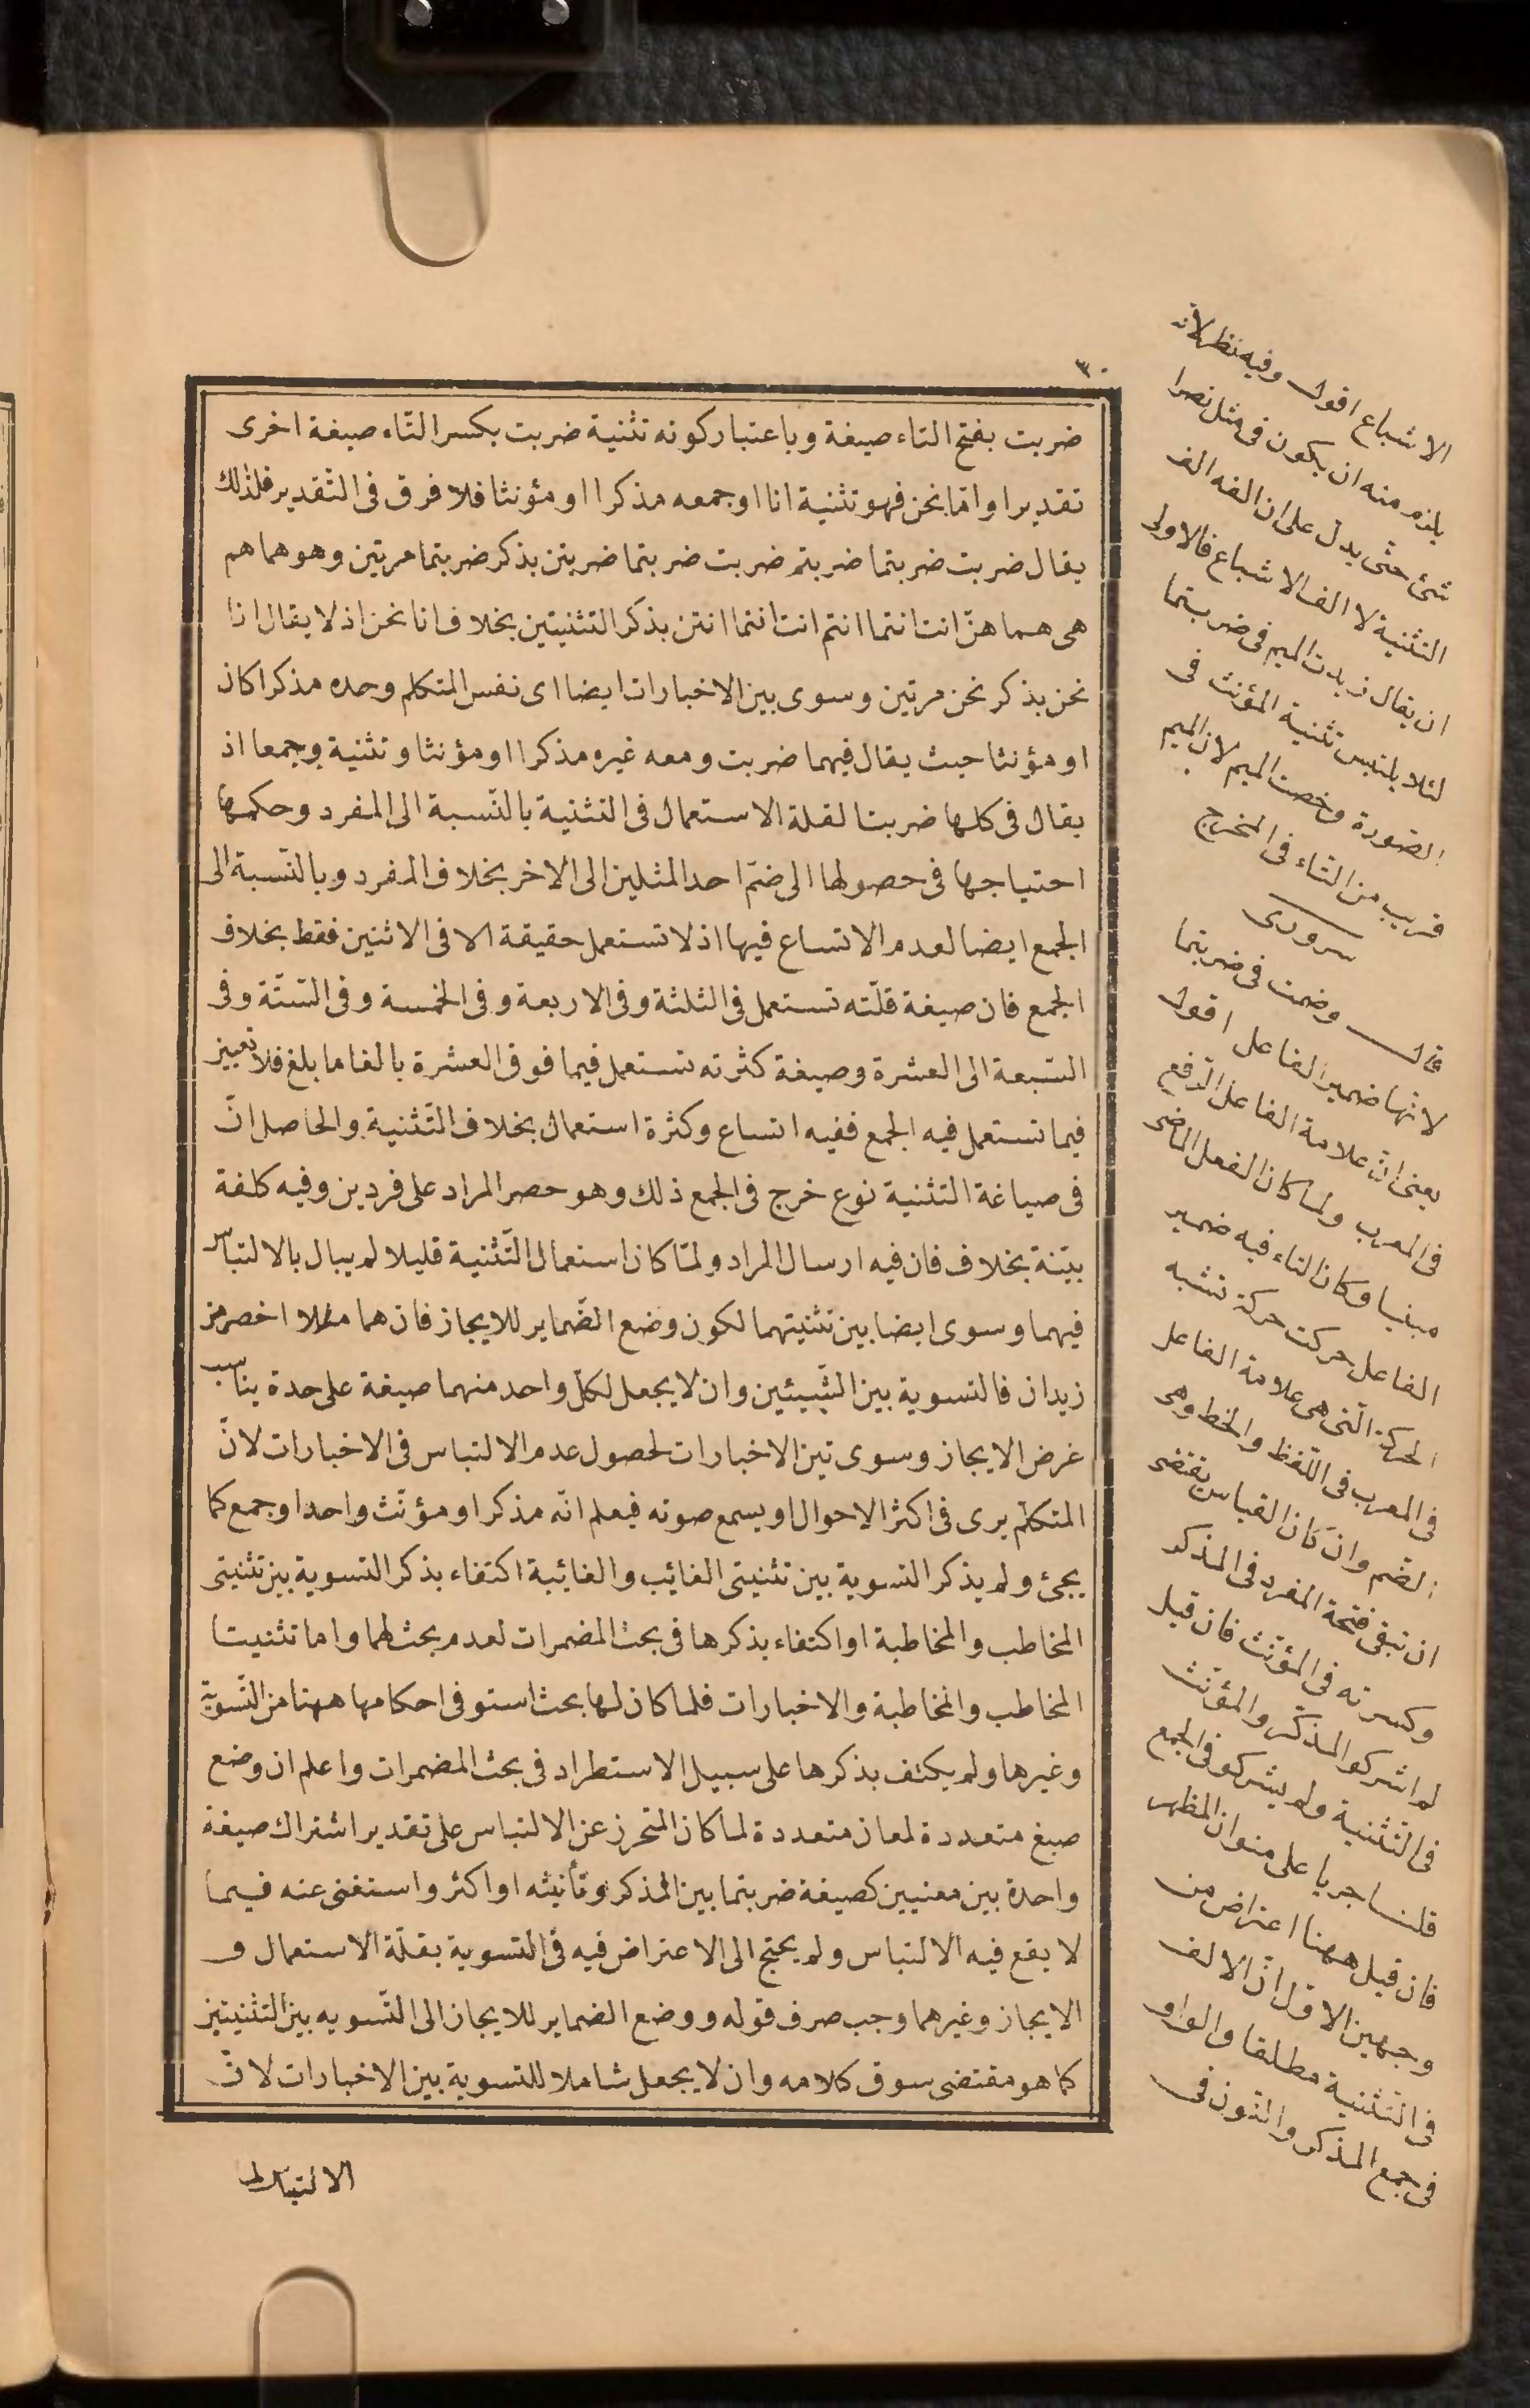 ٣٠
ضربت بفتح التاء صيغة وباعتبار كونه تثنية ضربت بكسر التّاء صيغة اخرى
تقديرا وامّا نحن فهو تثنية انا او جمعه مذكرا او مؤنثا فلا فرق فى التّقدير فلذلك
يقال ضربت ضربتما ضربتم ضربت ضربتما ضربتن بذكر ضربتما مرتين وهو هما هم
هى هما هنّ انت انتما انتم انت انتما انتن بذكر التثنيتين بخلاف انا نحن اذ لا يقال انا
نحن بذكر نحن مرتين وسوى بين الاخبارات ايضا اى نفس المتكلم وحده مذكرا كان
او مؤنثا حيث يقال فيهما ضربت ومعه غيره مذكرا او مؤنثا وتثنية وجمعا اذ
يقال فى كلها ضربنا لقلة الاستعمال فى التثنية بالنّسبة الى المفرد وحكمها
احتياجها فى حصولها الى ضمّ احد المثلين الى الاخر بخلاف المفرد وبالنّسبة الى
الجمع ايضا لعدم الاتساع فيها اذ لا تستعمل حقيقة الا فى الاثنين فقط بخلاف
الجمع فان صيغة قلّته تستعمل فى الثلثة وفى الاربعة وفى الخمسة وفى السّتّة وفى
السّبعة الى العشرة وصيغة كثرته تستعمل فيما فوق العشرة بالغا ما بلغ فلا تعيين
فيما تستعمل فيه الجمع ففيه اتساع وكثرة استعمال بخلاف التّثنية والحاصل انّ
فى صياغة التثنية نوع خرج فى الجمع ذلك وهو حصر المراد على فردين وفيه كلفة
بيّنة بخلاف فان فيه ارسال المراد ولمّا كان استعمال التّثنية قليلا لم يبال بالالتباس
فيهما وسوى ايضا بين تثنيتهما لكون وضع الضّماير للايجاز فان هما مثلا اخصر من
زيدان فالتسوية بين الشّيئين وان لا يجعل لكلّ واحد منهما صيغة على حدة يناسب
غرض الايجاز وسوى بين الاخبارات لحصول عدم الالتباس فى الاخبارات لانّ
المتكلّم يرى فى اكثر الاحوال او يسمع صوته فيعلم انّه مذكر او مؤنّث واحد او جمع كما
يجئ ولم يذكر التسوية بين تثنيتى الغائب والغائبة اكتفاء بذكر التسوية بين تثنيتى
المخاطب والمخاطبة او اكتفاء بذكرها فى بحث المضمرات لعدم بحث لهما واما تثنيتا
المخاطب والمخاطبة والاخبارات فلما كان لها بحث استوفى احكامها ههنا من التّسوية
وغيرها ولم يكتف بذكرها على سبيل الاستطراد فى بحث المضمرات واعلم ان وضع
صيغ متعددة لمعان متعددة لما كان المتحرز عن الالتباس على تقدير اشتراك صيغة
واحدة بين معنيين كصيغة ضربتما بين المذكر وتأنيثه او اكثر واستغنى عنه فيما
لا يقع فيه الالتباس ولم يحتج الى الاعتراض فيه فى التسوية بقلّة الاستعمال و
الايجاز وغيرهما وجب صرف قوله ووضع الضماير للايجاز الى التّسويه بين التثنيتين
كما هو مقتضى سوق كلامه وان لا يجعل شاملا للتسوية بين الاخبارات لانّ
الالتباس
الاشباع اقول وفيه نظر لانه
يلزم منه ان يكون فى مثل نصرا
شئ حتّى يدل على ان الفه الف
التثنية لا الف الاشباع فالاولى
ان يقال زيدت الميم فى ضربتما
لئلا يلتبس تثنية المؤنث فى
الصّورة وخصت الميم لان الميم
قريب من التاء فى المخرج
سرورى
قال وضمت فى ضربتما
لانّها ضمير الفاعل اقول
يعنى انّ علامة الفاعل الرّفع
فى المعرب ولما كان الفعل الماضى
مبنيا وكان التاء فيه ضمير
الفاعل حركت حركة تشبه
الحركة الّتى هى علامة الفاعل
فى المعرب فى اللّفظ والخط وهى
الضّم وان كان القياس يقتضى
ان تبقى فتحة المفرد فى المذكر
وكسرته فى المؤنّث فان قيل
لم اشركوا المذكّر والمؤنّث
فى التّثنية ولم يشركو فى الجمع
قلنا جريا على منوان المظهر
فان قيل ههنا اعتراض من
وجهين الاوّل انّ الالف
فى التثنية مطلقا والواو
فى جمع المذكر والنّون فى